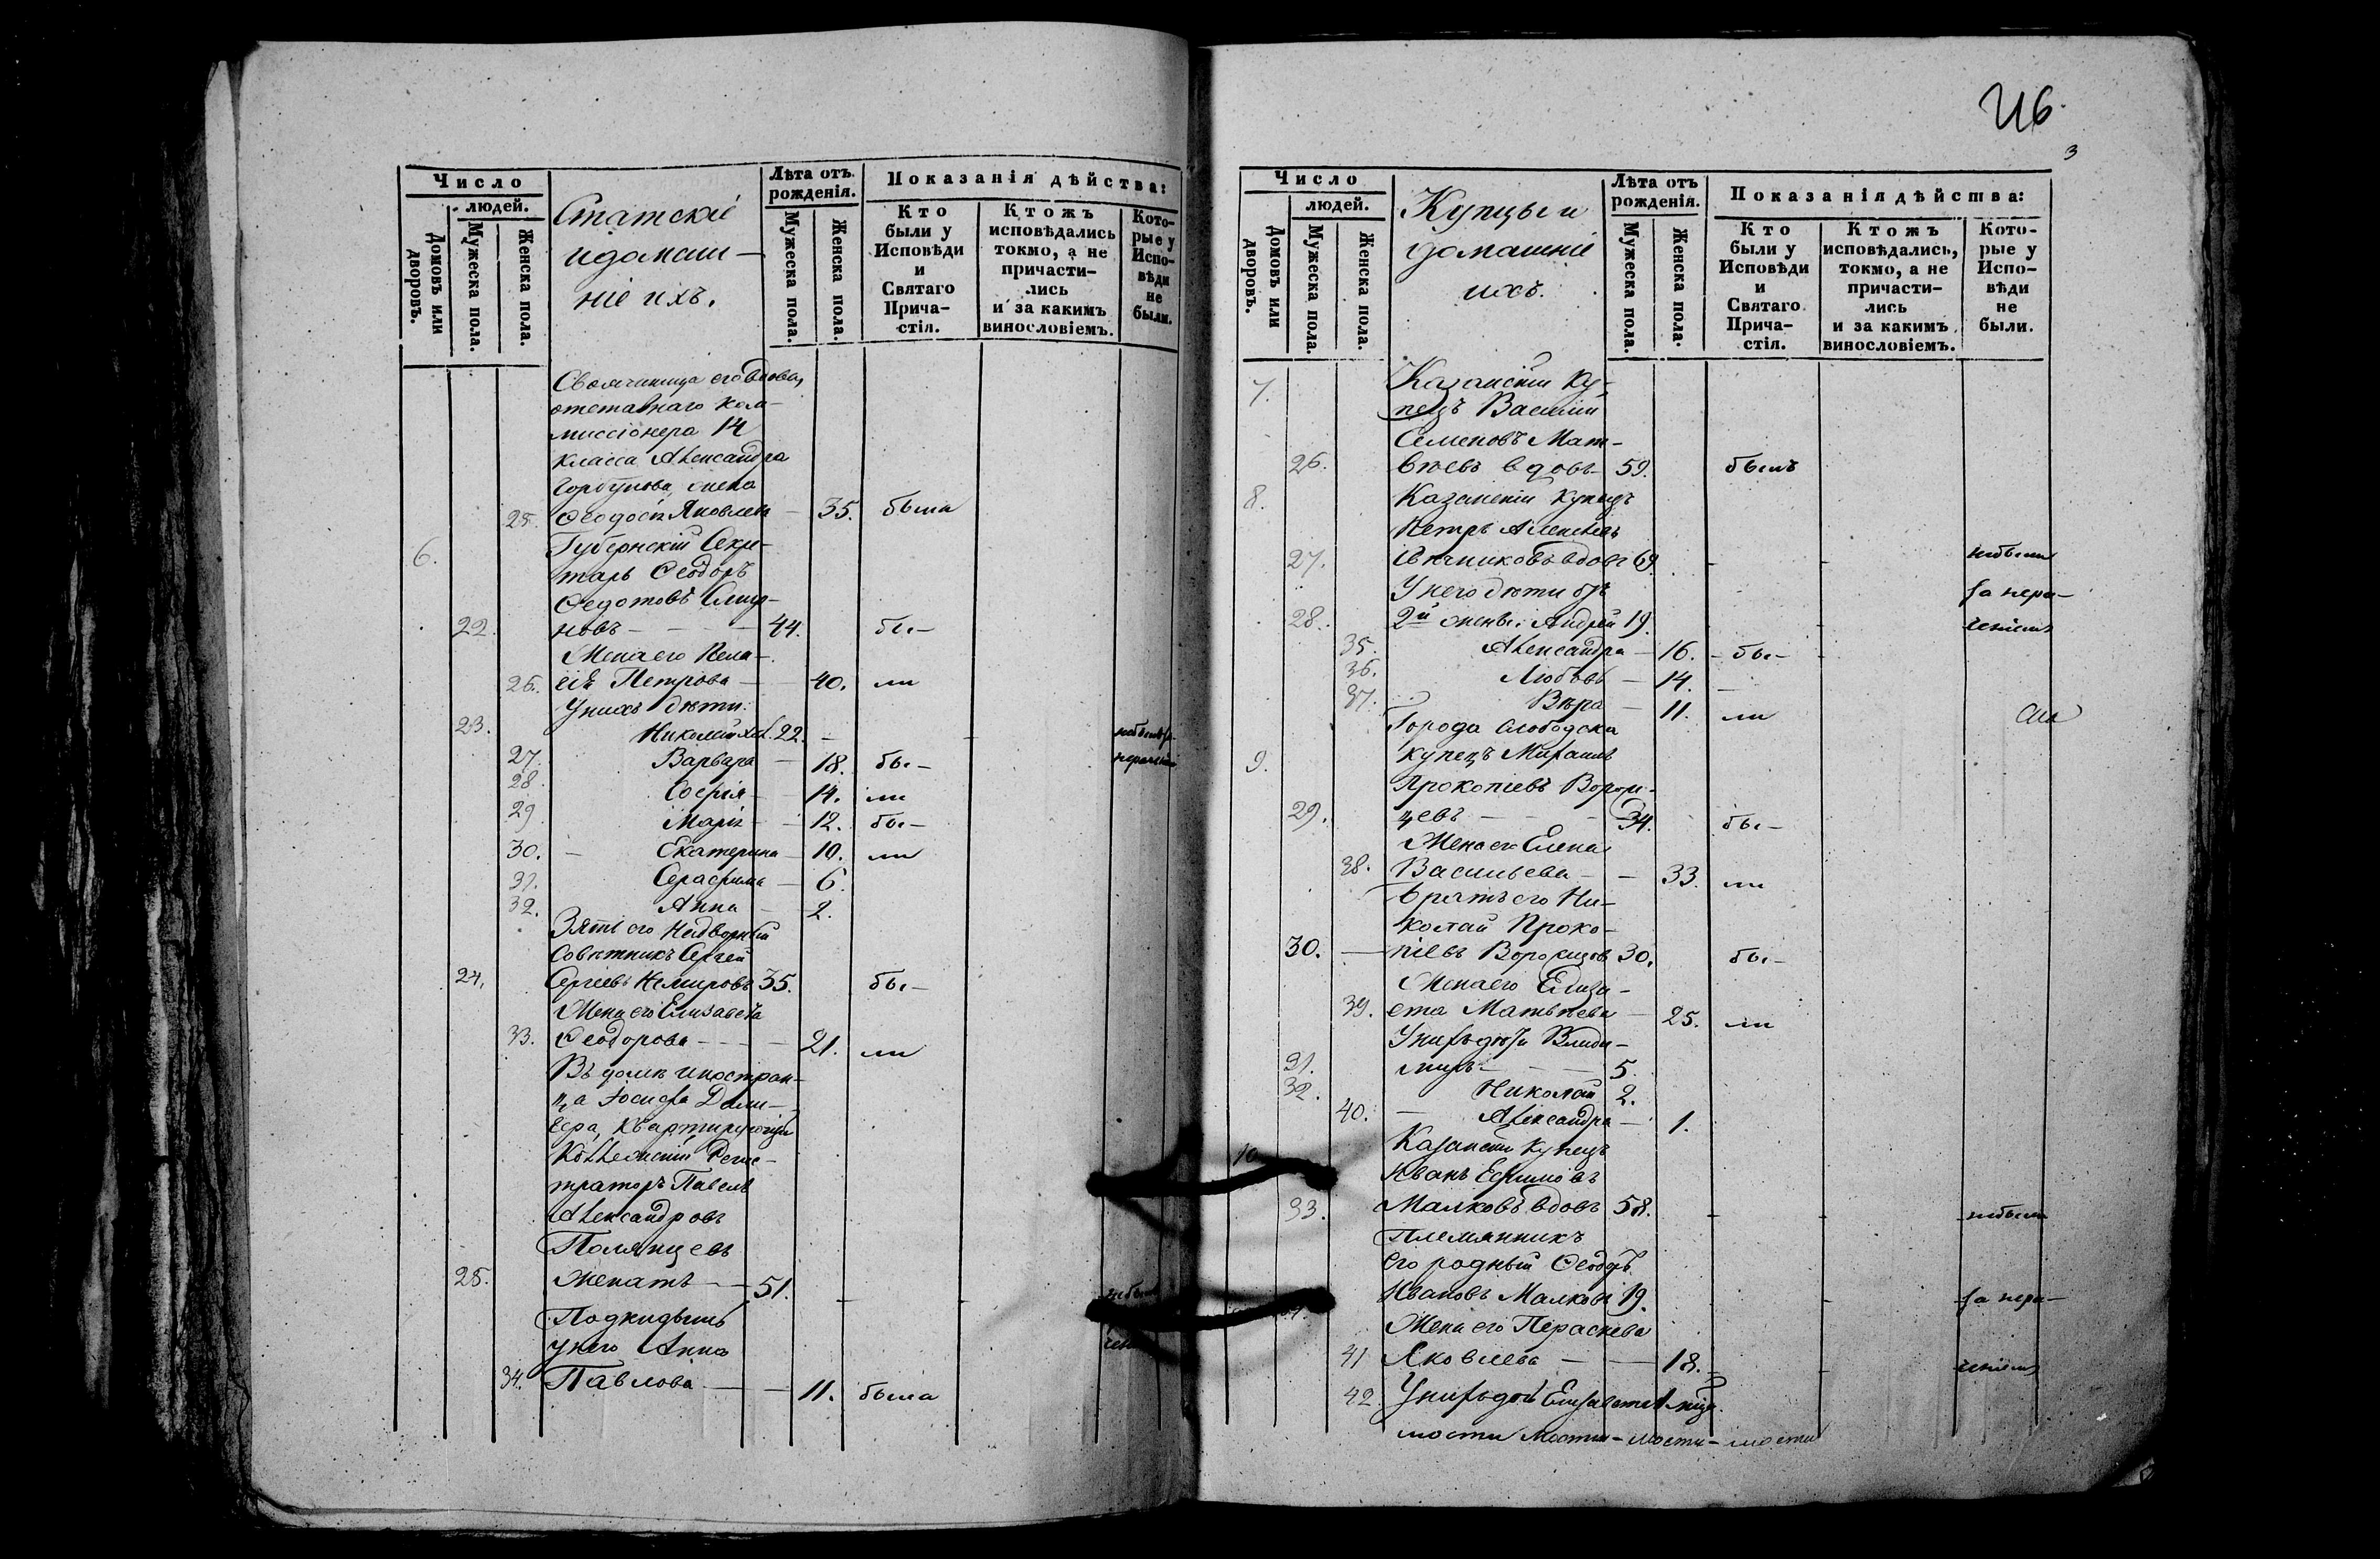 Число
людей.
Домовъ или дворовъ.
Мужеска пола.
Женска пола.
Статскіе
и домаш-
ніе ихъ.
Лѣта отъ
рожденія.
Мужеска пола.
Женска пола.
Показанія дѣйства:
Кто были у Исповѣди и Святаго Прича-стія.
Ктожъ исповѣдались токмо, а не причасти-лись и за какимъ винословіемъ.
Кото-рые у Испо-вѣди не были.
его вдова,
отставнаго ком-
миссіонера 14
класса Александра
Горбунова жена
25. Ѳеодосія Яковлева 35. была
6. Губернскій Секре-
тарь Ѳеодоръ
Ѳедотовъ Смир-
22. новъ 44. бы-
Жена его Пела-
26. гія Петрова 40. ли
У нихъ дѣти:
23. Николай 22.
27. Варвара 18. бы-
28 Софія 14. ли
29 Марія 12. бы-
30. Екатерина 10. ли
31. Серафима 6.
32. Анна 2.
Зять его Надворный
Совѣтникъ Сергей
24. Сергіевъ Немировъ 35. бы-
Жена его Елизавета
33. Ѳеодорова 21. ли
Въ домѣ иностран-
ца Іосифа
квартирующій
Коллежскій Регис-
траторъ Павелъ
Александровъ
Полянцевъ
25. женатъ 51.
Подкидышъ
у него Анна
34. Павлова 11. была
3
Число
людей.
Домовъ или дворовъ.
Мужеска пола.
Женска пола.
Купцы и
домашніе
ихъ.
Лѣта отъ
рожденія.
Мужеска пола.
Женска пола.
Показанія дѣйства:
Кто были у Исповѣди и Святаго Прича-стія.
Ктожъ исповѣдались, токмо, а не причасти-лись и за какимъ винословіемъ.
Кото-рые у Испо-вѣди не были.
7. Казанскій Ку-
пецъ Василій
Семеновъ Мат-
26. вѣевъ вдовъ 59. былъ
8. Казанскій купецъ
Петръ Алексѣевъ
27. вдовъ 69. небыли
У него дѣти отъ за нера-
28. 2й жены: Андрей 19. ченіемъ
35. Александра 16. бы-
36. Любовь 14.
37. Вѣра 11. ли
Города Слободска
9. купецъ Михаилъ
Прокопіевъ
29. цевъ 34. бы-
Жена его Елена
38. Васильева 33. ли
Братъ его Ни-
колай Проко-
30. піевъ 30. бы-
Жена его Елиза-
39. вета Матвѣева 25. ли
У нихъ дѣти Влади-
31. миръ 5.
32. Николай 2.
40. Александра 1.
10 Казанскій купецъ
Иванъ Ефимовъ
33. Малковъ вдовъ 58. небыли
Племянникъ
его родный Ѳеодоръ
Ивановъ Малковъ 19. за нера-
Жена его Параскева
41 Яковлева 18. ченіемъ
42 У нихъ дочь Елизавета 1